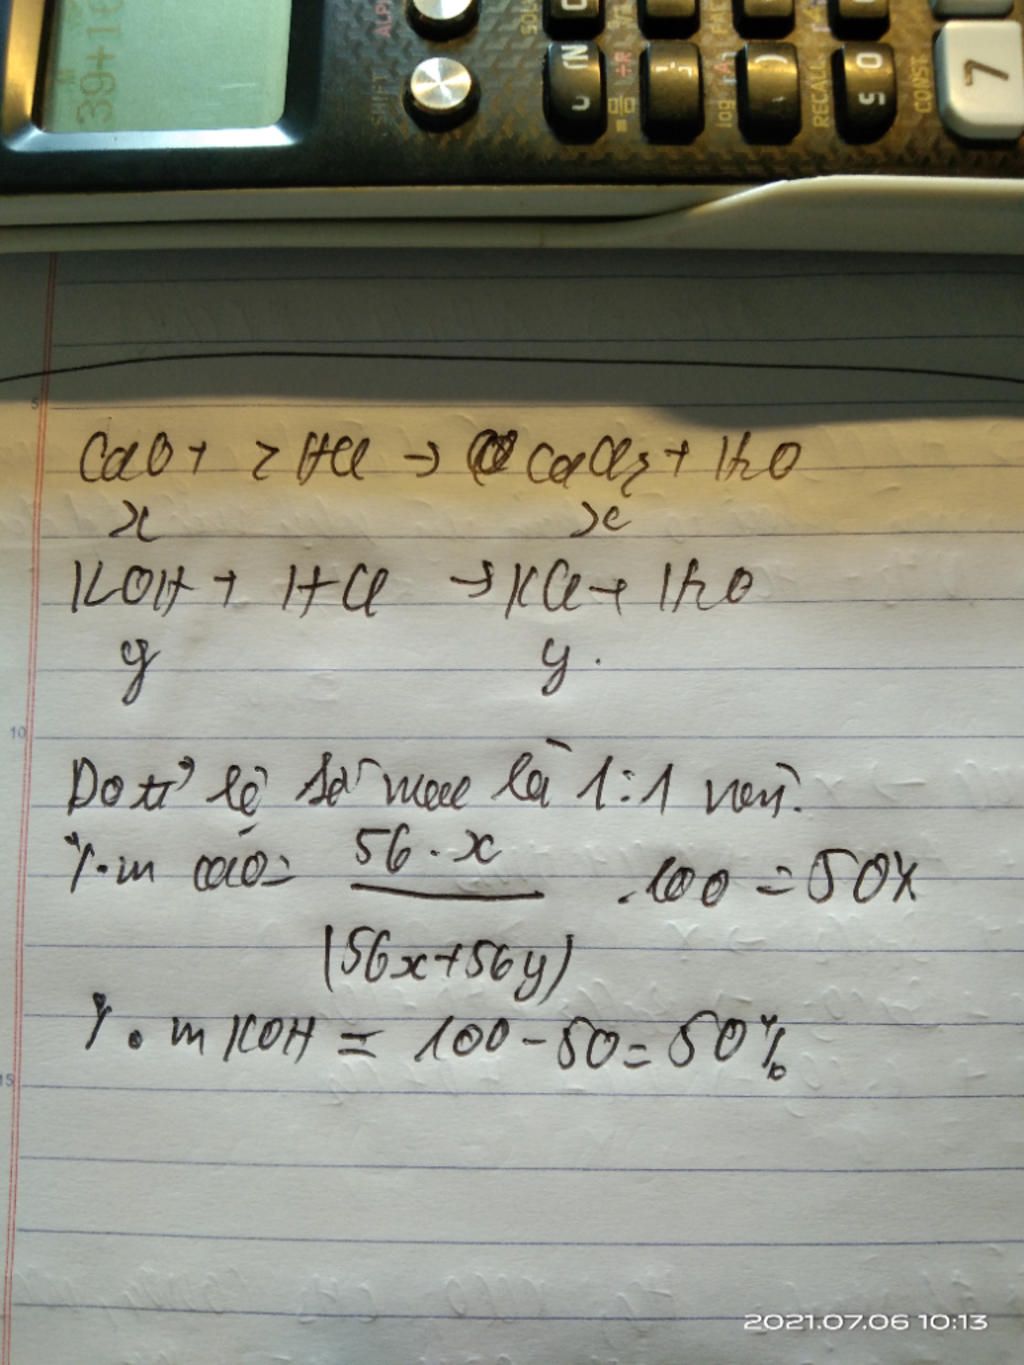 39+16
M
ALPH
SHIFT
SOL
÷R
log
FAC
RECALL
CONST
7
5
CaO + 2HCl → CaCl₂ + H₂O
x x
KOH + HCl → KCl + H₂O
y y.
10
Do tỉ lệ số mol là 1:1 nên:
%m CaO = 56.x / (56x+56y) .100 = 50%
%mKOH = 100-50=50%
15
2021.07.06 10:13